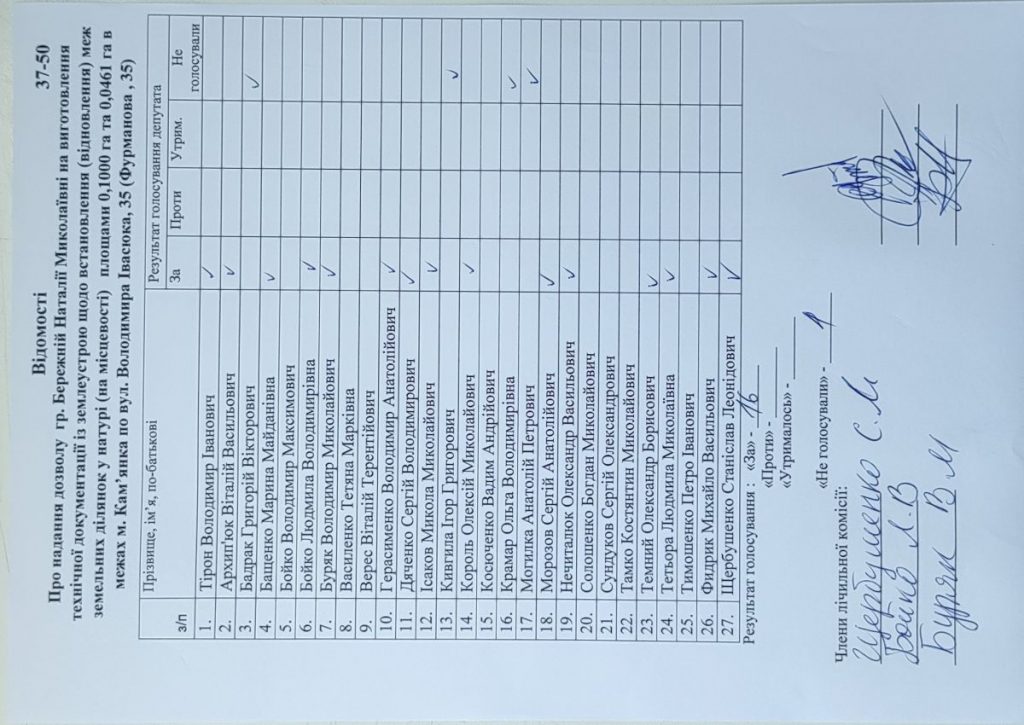 Відомості 37-50
Про надання дозволу гр. Бережній Наталії Миколаївні на виготовлення
технічної документації із землеустрою щодо встановлення (відновлення) меж
земельних ділянок у натурі (на місцевості) площами 0,1000 га та 0,0461 га в
межах м. Кам’янка по вул. Володимира Івасюка, 35 (Фурманова , 35)
з/п Прізвище, ім’я, по-батькові Результат голосування депутата
За Проти Утрим. Не голосували
1. Тірон Володимир Іванович ✓
2. Архип'юк Віталій Васильович ✓
3. Бадрак Григорій Вікторович ✓
4. Бащенко Марина Майданівна ✓
5. Бойко Володимир Максимович
6. Бойко Людмила Володимирівна ✓
7. Буряк Володимир Миколайович ✓
8. Василенко Тетяна Марківна
9. Верес Віталій Терентійович
10. Герасименко Володимир Анатолійович ✓
11. Дяченко Сергій Володимирович ✓
12. Ісаков Микола Миколайович ✓
13. Кивгила Ігор Григорович ✓
14. Король Олексій Миколайович ✓
15. Косюченко Вадим Андрійович
16. Крамар Ольга Володимирівна ✓
17. Могилка Анатолій Петрович ✓
18. Морозов Сергій Анатолійович ✓
19. Нечиталюк Олександр Васильович ✓
20. Солошенко Богдан Миколайович
21. Сундуков Сергій Олександрович
22. Тамко Костянтин Миколайович
23. Темний Олександр Борисович ✓
24. Тетьора Людмила Миколаївна ✓
25. Тимошенко Петро Іванович
26. Фидрик Михайло Васильович ✓
27. Щербушенко Станіслав Леонідович ✓
Результат голосування : «За» - 16
«Проти» -
«Утрималось» -
«Не голосували» -
Члени лічильної комісії:
Щербушенко С.М
Бойко Л.В
Буряк В М